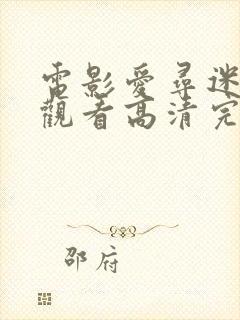 電影愛尋迷
觀看高清完
邵府